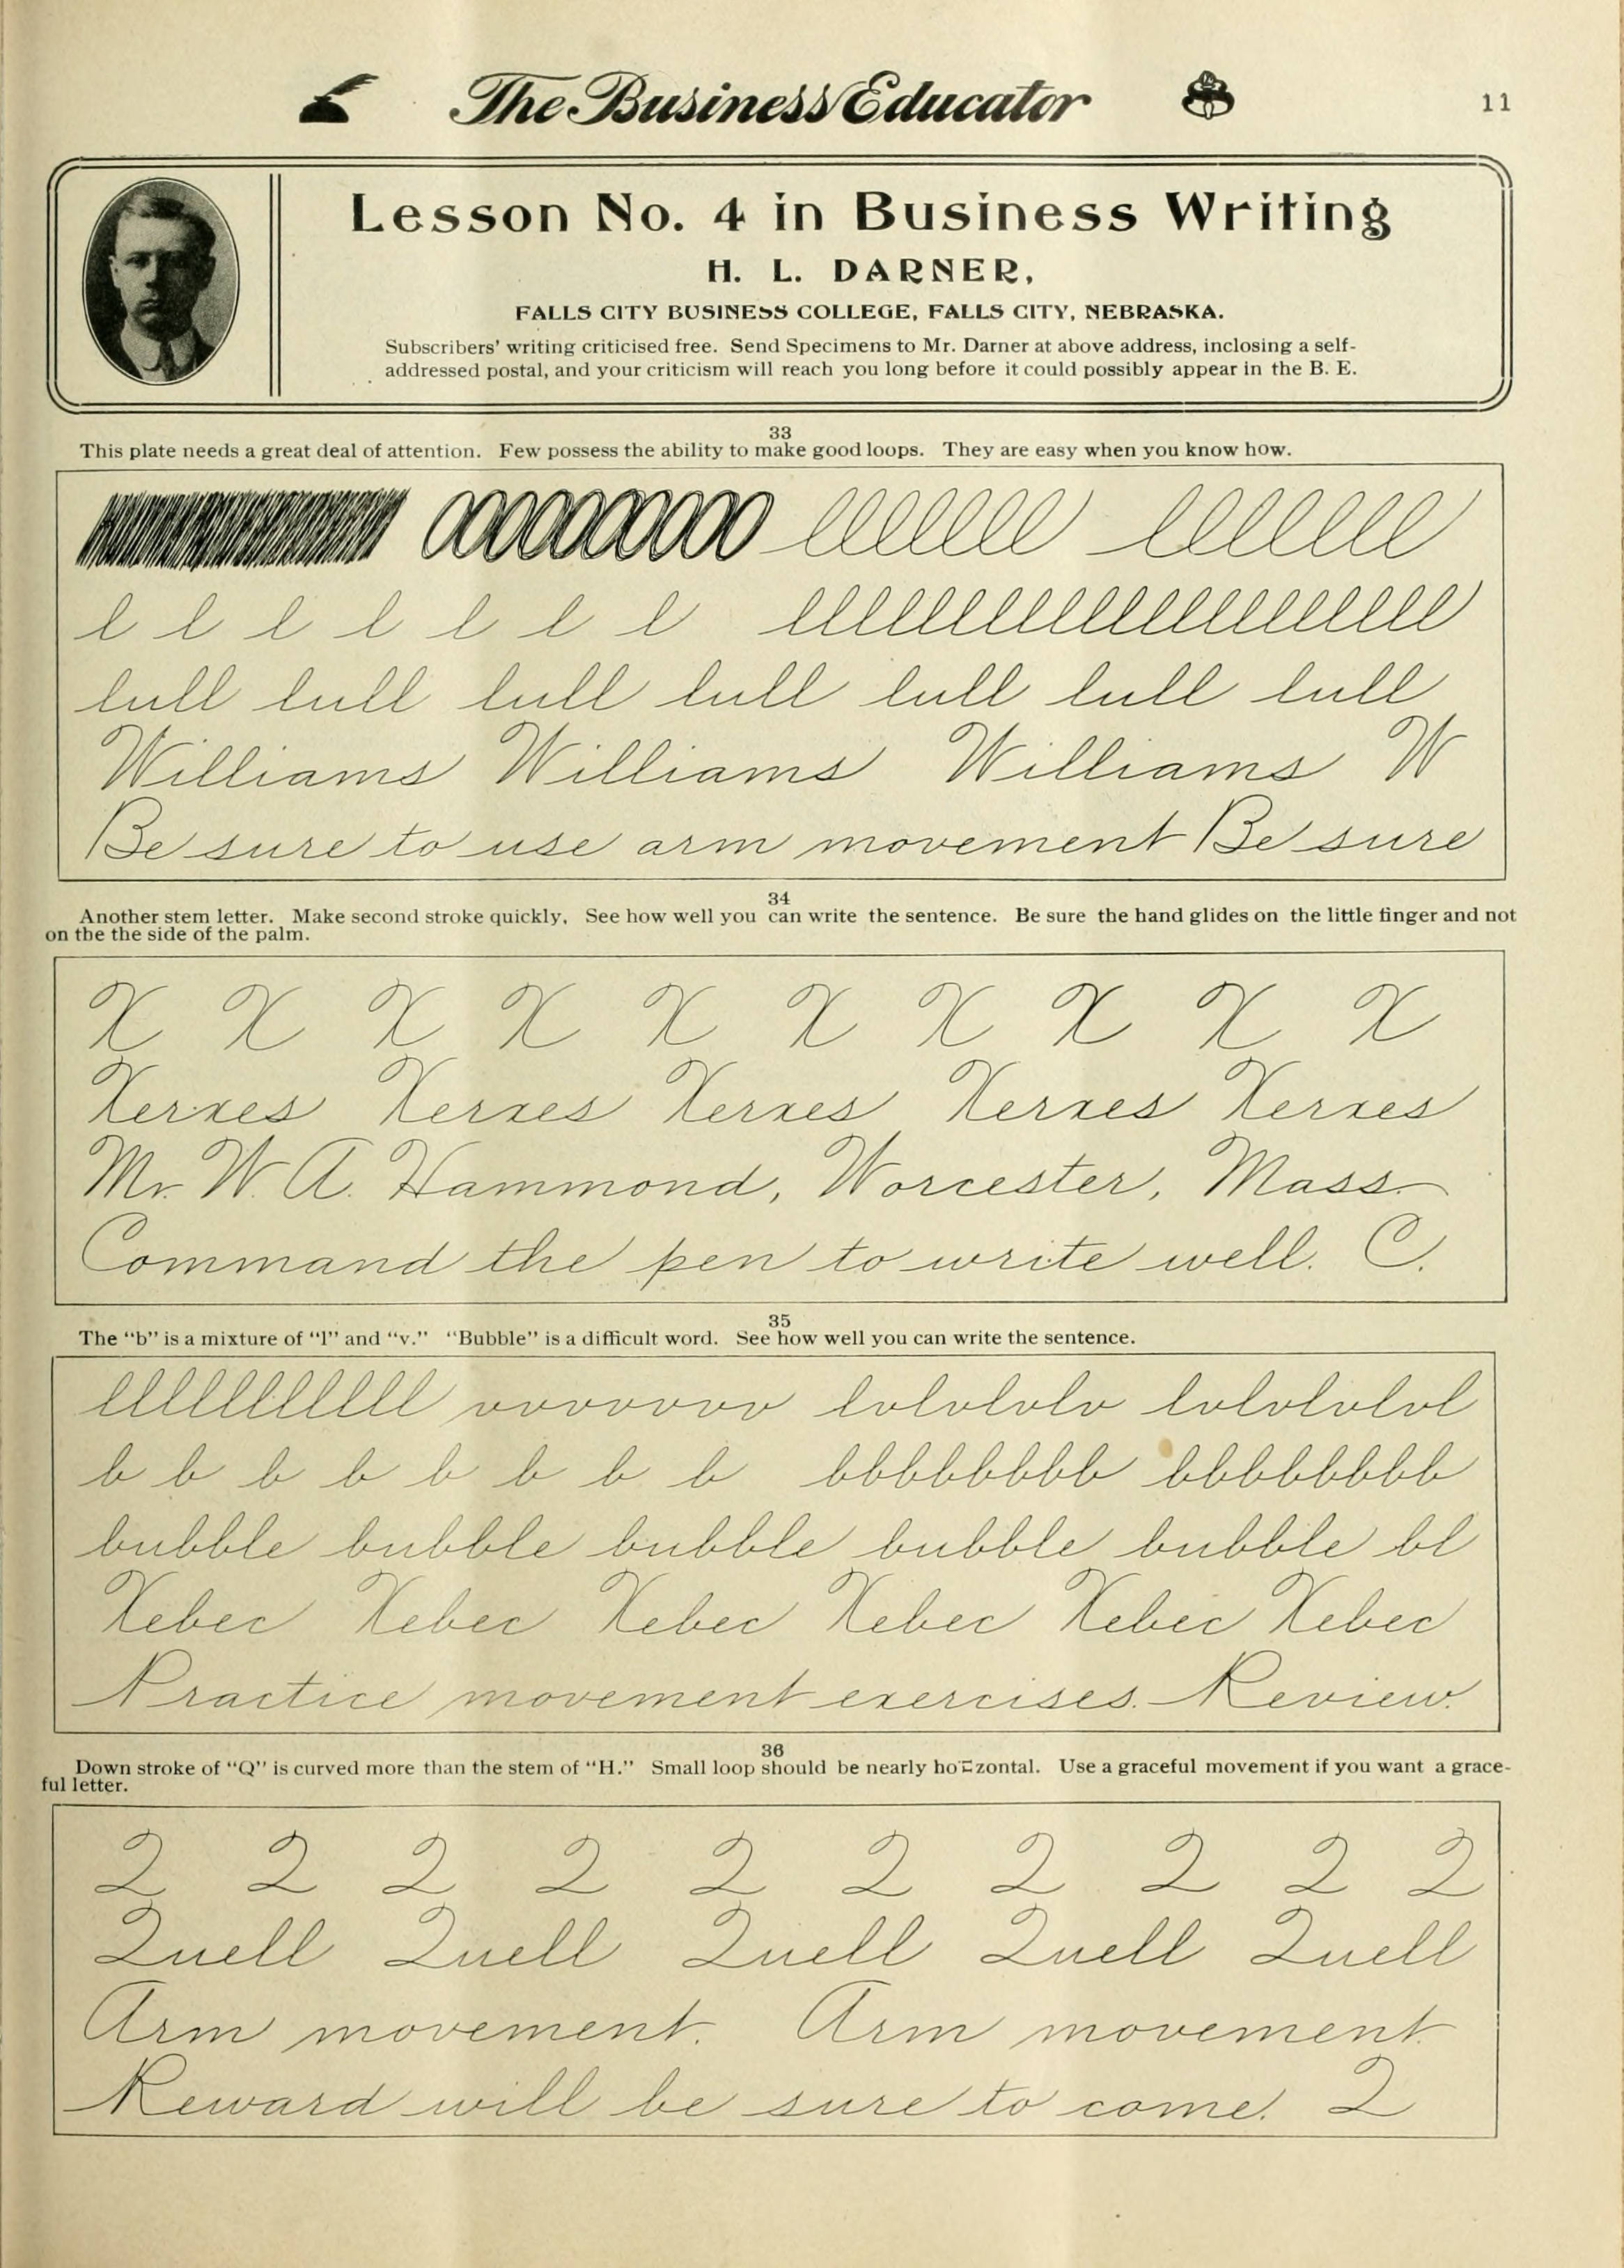 The Business Educator
11
Lesson No. 4 in Business Writing
H. L. DARNER,
FALLS CITY BUSINESS COLLEGE, FALLS CITY, NEBRASKA.
Subscribers' writing criticised free. Send Specimens to Mr. Darner at above address, inclosing a self-
addressed postal, and your criticism will reach you long before it could possibly appear in the B. E.
33
This plate needs a great deal of attention. Few possess the ability to make good loops. They are easy when you know how.
lllllll lllllll
l l l l l l l llllllllllllllllll
lull lull lull lull lull lull lull
Williams Williams Williams W
Be sure to use arm movement Be sure
34
Another stem letter. Make second stroke quickly, See how well you can write the sentence. Be sure the hand glides on the little finger and not
on the the side of the palm.
X X X X X X X X X X
Xerxes Xerxes Xerxes Xerxes Xerxes
Mr. W. A. Hammond, Worcester, Mass.
Command the pen to write well. C.
35
The "b" is a mixture of "l" and "v." "Bubble" is a difficult word. See how well you can write the sentence.
lllllllllll vvvvvvv lvlvlvlv lvlvlvlvl
b b b b b b b b bbbbbbbb bbbbbbbb
bubble bubble bubble bubble bubble bl
Xebec Xebec Xebec Xebec Xebec Xebec
Practice movement exercises. Review.
36
Down stroke of "Q" is curved more than the stem of "H." Small loop should be nearly horizontal. Use a graceful movement if you want a grace-
ful letter.
Q Q Q Q Q Q Q Q Q Q
Quell Quell Quell Quell Quell
Arm movement. Arm movement.
Reward will be sure to come. Q